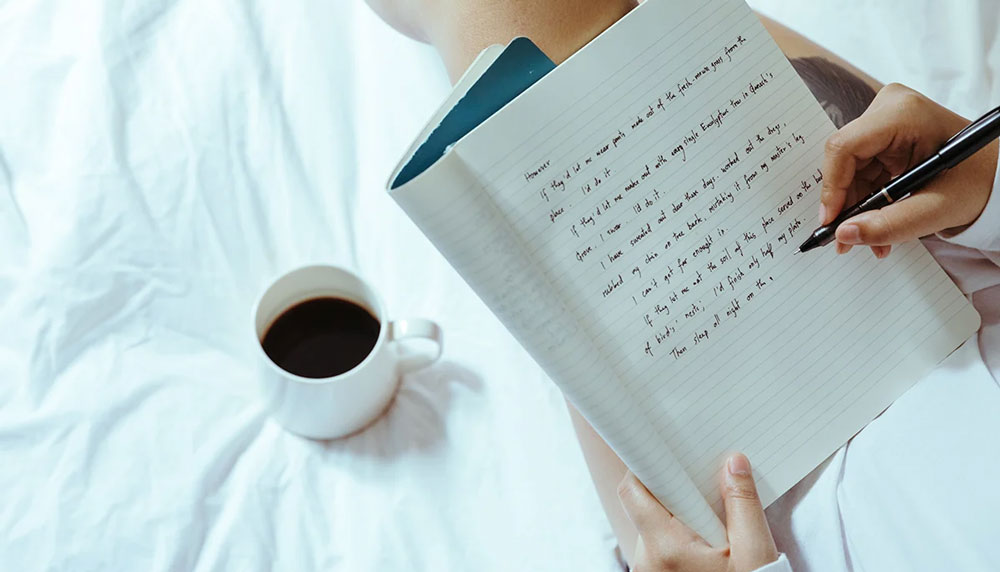 However
If they'd let me wear pants made out of the fresh-mown grass from the
place. I'd do it.
If they'd let me make out with every single Eucalyptus tree in Queach's
Grove, I swear. I'd do it.
I have sweated out dear these days, worked out the dregs,
rubbed my chin on tree bark, mistaking it from my master's leg
I can't get far enough in.
If they let me eat the soil of this place served on the bed
of birds' nests', I'd finish only half my plate.
Then sleep all night on the